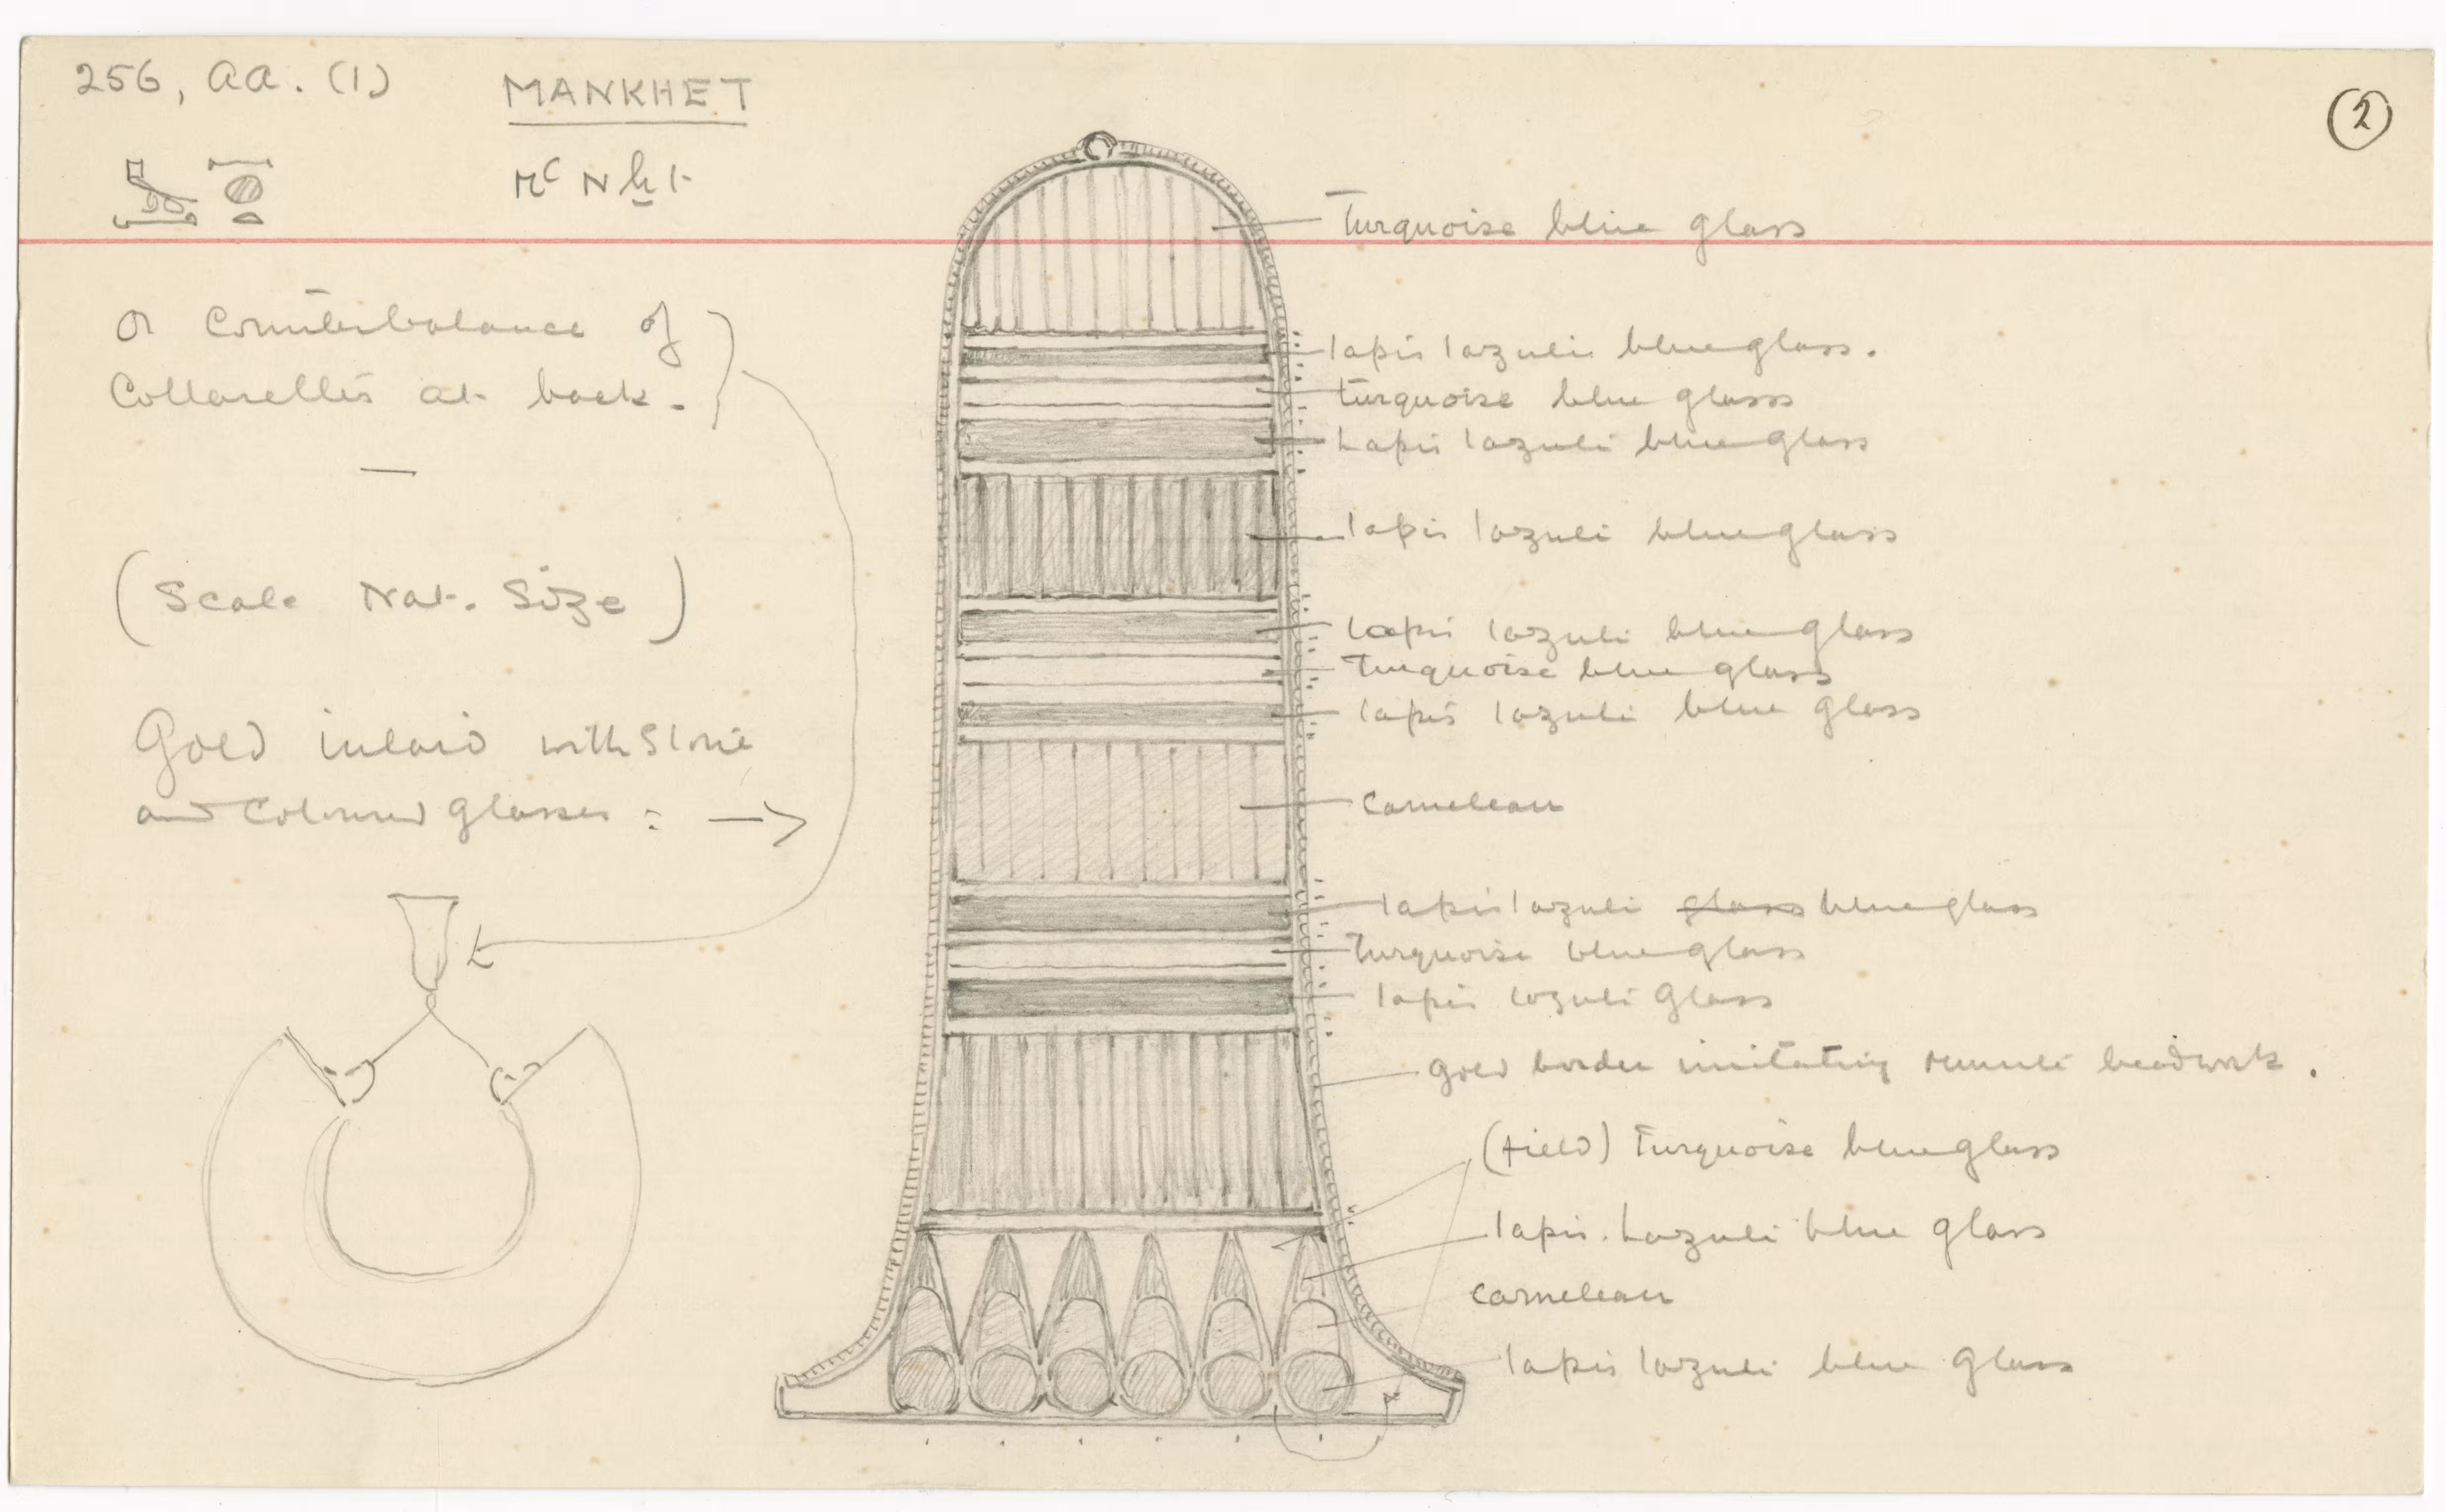 256, aa. (1)
MANKHET
(2)
Mᶜ N ẖ t
Turquoise blue glass
or Counterbalance of
Collarettes at back.
lapis lazuli blue glass.
turquoise blue glass
Lapis lazuli blue glass
lapis lazuli blue glass
(Scale Nat. Size)
lapis lazuli blue glass
Turquoise blue glass
lapis lazuli blue glass
Gold inlaid with Stone
and Coloured Glasses : →
Carnelean
lapis lazuli glass blue glass
Turquoise blue glass
lapis lazuli Glass
Gold border imitating
beadwork.
(field) Turquoise blue glass
lapis. Lazuli blue glass
Carnelean
lapis lazuli blue Glass